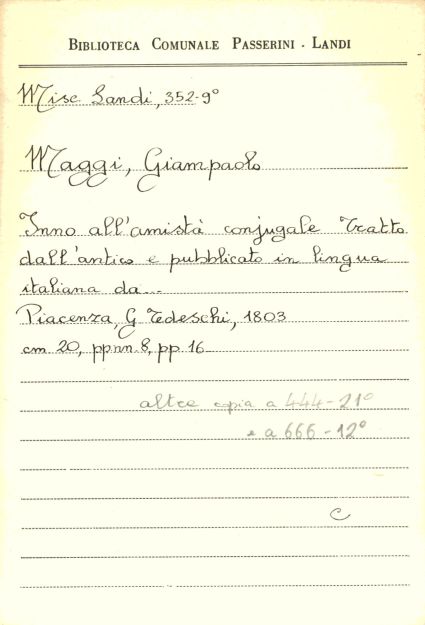 BIBLIOTECA COMUNALE PASSERINI - LANDI
Misc Landi, 352-9°
Maggi, Giampaolo
Inno all'amistà conjugale Tratto
dall'antico e pubblicato in lingua
italiana da...
Piacenza, G Tedeschi, 1803
cm 20, pp nn. 8, pp 16
altre copia a 444-21°
e a 666-12°
C